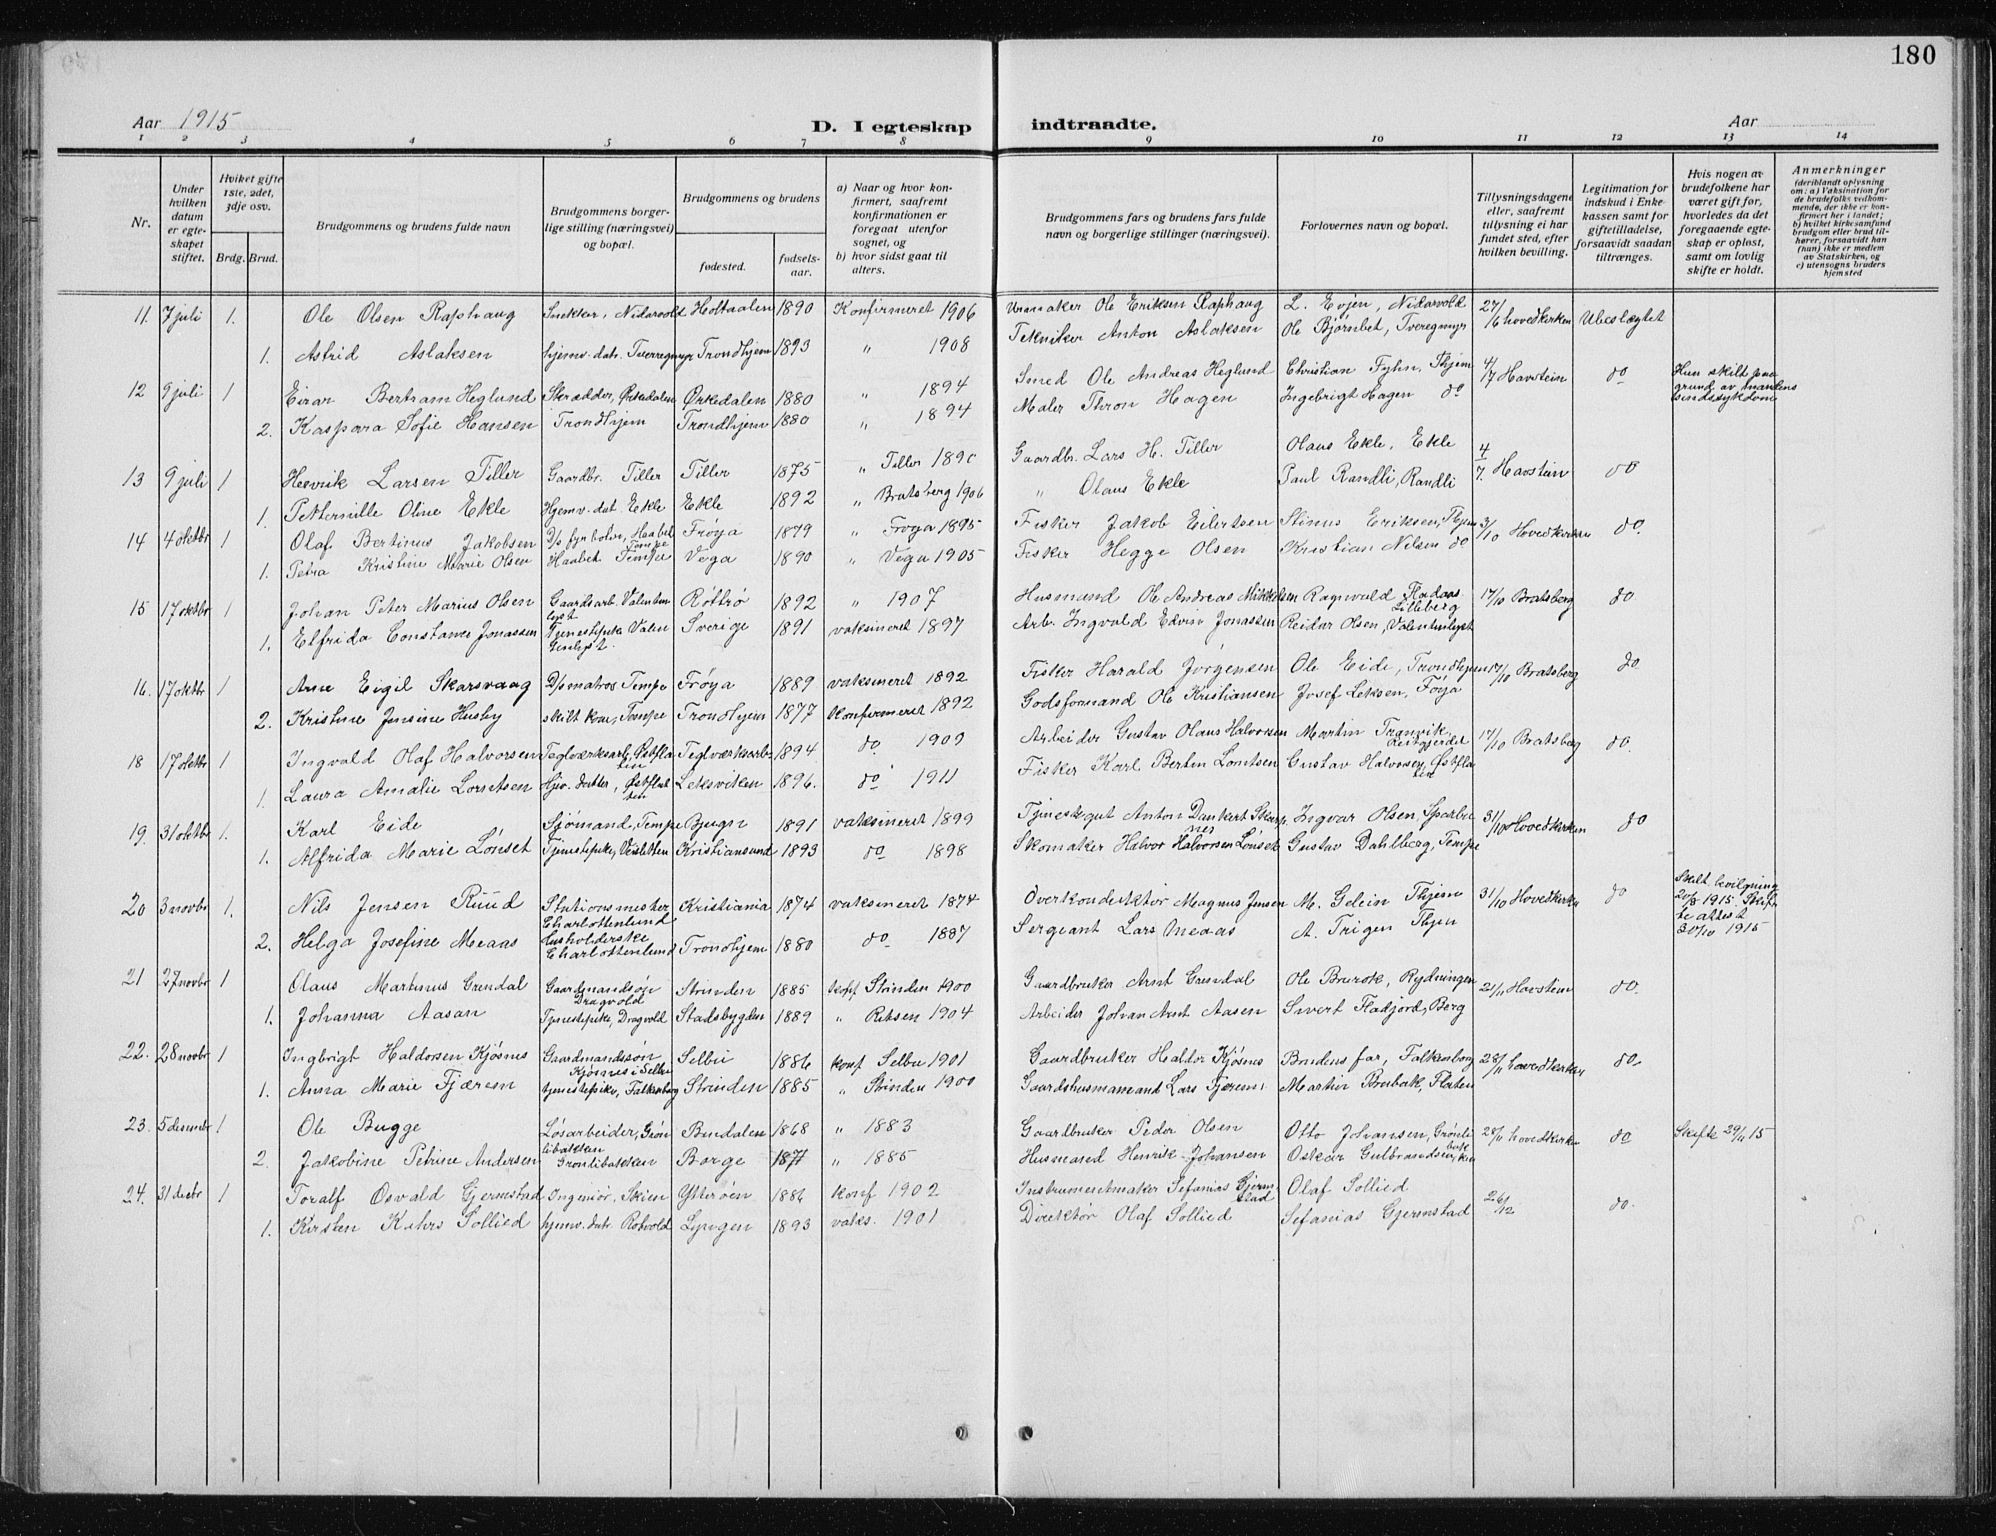 180
Aar 1915
D. I egteskap indtraadte.
Aar
1 2 3 4 5 6 7 8 9 10 11 12 13 14
Nr.
Under hvilken datum er egteskapet stiftet.
Hviket gifte 1ste, 2det, 3dje osv.
Brdg. Brud.
Brudgommens og brudens fulde navn
Brudgommens borgerlige stilling (næringsvei) og bopæl.
Brudgommens og brudens
fødested.
fødselsaar.
a) Naar og hvor konfirmert, saafremt konfirmationen er foregaat utenfor sognet, og
b) hvor sidst gaat til alters.
Brudgommens fars og brudens fars fulde navn og borgerlige stillinger (næringsvei).
Forlovernes navn og bopæl.
Tillysningsdagene eller, saafremt tillysning ei har fundet sted, efter hvilken bevilling.
Legitimation for indskud i Enkekassen samt for giftetilladelse, forsaavidt saadan tiltrænges.
Hvis nogen av brudefolkene har været gift før, hvorledes da det foregaaende egteskap er opløst, samt om lovlig skifte er holdt.
Anmerkninger (deriblandt oplysning om: a) Vaksination for de brudefolks vedkommende, der ikke er konfirmert her i landet; b) hvilket kirkesamfund brudgom eller brud tilhører, forsaavidt han (hun) ikke er medlem av Statskirken, og c) utensogns bruders hjemsted
11. 7 juli 1. Ole Olsen Raphaug Snekker, Nidarvold Holtaalen 1890 Konfirmeret 1906 Urmaker Ole Eriksen Raphaug L. Evjen, Nidarvold 27/6 hovedkirken Ubeslægtet
1. Astrid Aslaksen hjemv. datr. Tverregmyr Trondhjem 1893 " 1908 Tekniker Anton Aslaksen Ole Bjørnbet, Tveregmyr
12 9 juli 1 Einar Bertram Heglund Skrædder, Orkedalen Ørkedalen 1880 " 1894 Smed Ole Andreas Heglund Christian Fyhn, Thjem 4/7 Havstein do Hun skilt paa grund av mandens sindssykdom
2. Kaspara Sofie Hansen Trondhjem Trondhjem 1880 " 1894 Maler Thron Hagen Ingebrigt Hagen do
13 9 juli 1 Henrik Larsen Tiller Gaardbr. Tiller Tiller 1875 " Tiller 1890 Gaardbr. Lars H. Tiller Olaus Ekle, Ekle 4/7. Havstein do
1. Petternille Oline Ekle Hjemv. dat. Ekle Ekle 1892 " Bratsberg 1906 " Olaus Ekle Paul Randli, Randli
14 4 oktbr 1 Olaf Bertinus Jakobsen D/s fyrbøter, Haabet Tempe Frøya 1879 " Frøya 1895 Fisker Jakob Eilertsen Stinus Eriksen, Thjem 3/10 Hovedkirken do.
1. Petra Kristine Marie Olsen Haabet Tempe Vega 1890 " Vega 1905 Fisker Hegge Olsen Kristian Nilsen do
15 17 oktbr 1 Johan Peter Marius Olsen Gaardsarb. Valentinlyst Røttrø 1892 " 1907 Husmand Ole Andreas Mikkelsen Ragnvald Fladaas Lilleberg 17/10 Bratsberg do
1. Elfrida Constanse Jonassen Tjenestepike Valentinlyst. Sverige 1891 vaksineret 1897 Arb. Ingvald Edvin Jonassen Reidar Olsen, Valentinlyst
16. 17 oktbr 1 Arne Eigil Skarsvaag D/s matros, Tempe Frøya 1889 vaksineret 1892 Fisker Harald Jørgensen Ole Eide, Trondhjem 17/10 Bratsberg do
2. Kristine Jensine Husby skilt kone, Tempe Trondhjem 1877 konfirmeret 1892 Godsformand Ole Kristiansen Josef Leksen, Frøya
18 17 oktbr 1 Ingvald Olaf Halvorsen Teglverksarb., Østflaten Teglværksarb. 1894 do 1909 Arbeider Gustav Olaus Halvorsen Martin Tranvik, Reitgjerdet 17/10 Bratsberg do.
1. Laura Amalie Lorntsen Hjv. datter, Østflaten Leksviken 1896. do 1911 Fisker Karl Bertin Lorntsen Gustav Halvorsen, Østflaten
19. 31 oktbr 1. Karl Eide Sjømand, Tempe Bjugn 1891 vaksineret 1899 Tjenestegut Anton Dankert Skarpnes Ingvar Olsen Sparbu 31/10 Hovedkirken do
1. Alfrida Marie Lønset Tjenestepike, Veisletten Kristiansund 1893 do 1898 Skomaker Halvor Halvorsen Lønset Gustav Dahlberg, Tempe
20 3 novbr 1. Nils Jensen Ruud Stationsmester Charlottenlund Kristiania 1874 vaksineret 1874 Overkonduktør Magnus Jensen M. Gelein Thjem 31/10 Hovedkirken do Skilt bevilgning 20/8 1915. Skifte attest 30/10 1915
2. Helga Josefine Meaas Husholderske Charlottenlund Trondhjem 1880 do 1887 Sergeant Lars Meaas A. Trigen Thjem
21 27 novbr 1 Olaus Martinus Grendal Gaardmandsøn Dragvold Strinden 1885 konf Strinden 1900 Gaardbruker Arnt Grendal Ole Brurok, Rydningen 21/11 Havstein do.
1. Johanna Aasan Tjenestepike, Dragvold Stadsbygden 1889 " Reksen 1904 Arbeider Johan Arnt Aasen Sivert Fladjord, Berg
22. 28 novbr 1 Ingbrigt Haldorsen Kjøsnes Gaardmandssøn Kjøsnes i Selbu Selbu 1886 konf Selbu 1901 Gaardbruker Haldor Kjøsnes Brudens far, Falkenborg 28/11 hovedkirken do
1. Anna Marie Fjærem tjenestepike, Falkenborg Strinden 1885 " Strinden 1900 Gaardshusmand Lars Fjerem, Martin Brubak, Floten
23. 5 desembr 1 Ole Bugge Løsarbeider, Grønlibakken Bindalen 1868 " 1883 Gaardbruker Peder Olsen Otto Johansen, Grønlibak 28/11 hovedkirken do Skifte 29/11 15
2. Jakobine Petrine Andersen Grønlibakken Borge 1871 " 1885 Husmand Henrik Johansen Oskar Gulbrandsen
24. 31 decbr 1 Toralf Osvald Gjermstad Ingeniør, Skien Ytterøen 1886 konf 1902 Instrumentmaker Sefanias Gjermstad Olaf Sollied 26/12 do.
1. Kirsten Kahrs Sollied hjemv. datr. Rotvold Lyngen 1893 vaks. 1901 Direktør Olaf Sollied Sefanias Gjermstad